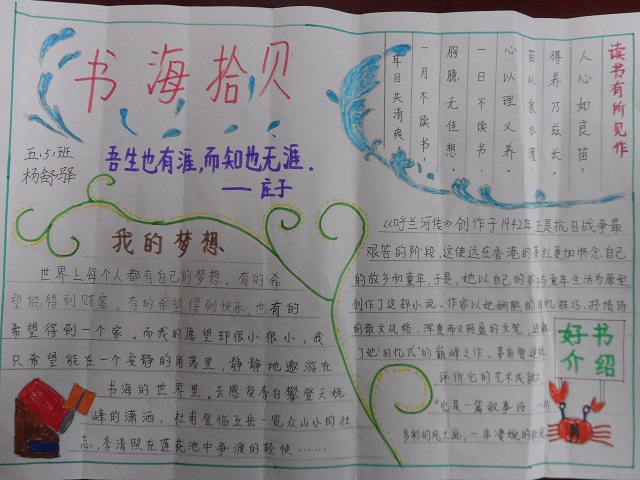 书海拾贝
五(5)班
杨舒驿
吾生也有涯,而知也无涯.
——庄子
读书有所见作
人心如良苗,
得养乃滋长。
苗以泉水灌,
心以理义养。
一日不读书,
胸臆无佳想。
一月不读书,
耳目失清爽。
我的梦想
世界上每个人都有自己的梦想。有的希
望能得到财富,有的希望得到快乐,也有的
希望得到一个家。而我的愿望却很小很小,我
只希望能在一个安静的角落里,静静地遨游在
书海的世界里。去感受李白攀登天姥
峰的潇洒,杜甫登临五岳一览众山小的壮
志,李清照在莲花池中争渡的轻快……
《呼兰河传》创作于1942年正是抗日战争最
艰苦的阶段,这使远在香港的萧红更加怀念自己
的故乡和童年,于是,她以自己的童年生活为原型
创作了这部小说。作家以她娴熟的技巧、抒情诗
的散文风格、浑重而又轻盈的文笔,
了她"回忆式"的巅峰之作。茅盾曾这样
评价它的艺术成就:
"它是一篇叙事诗,一
多彩的风土画,一串凄婉的
好书
介绍